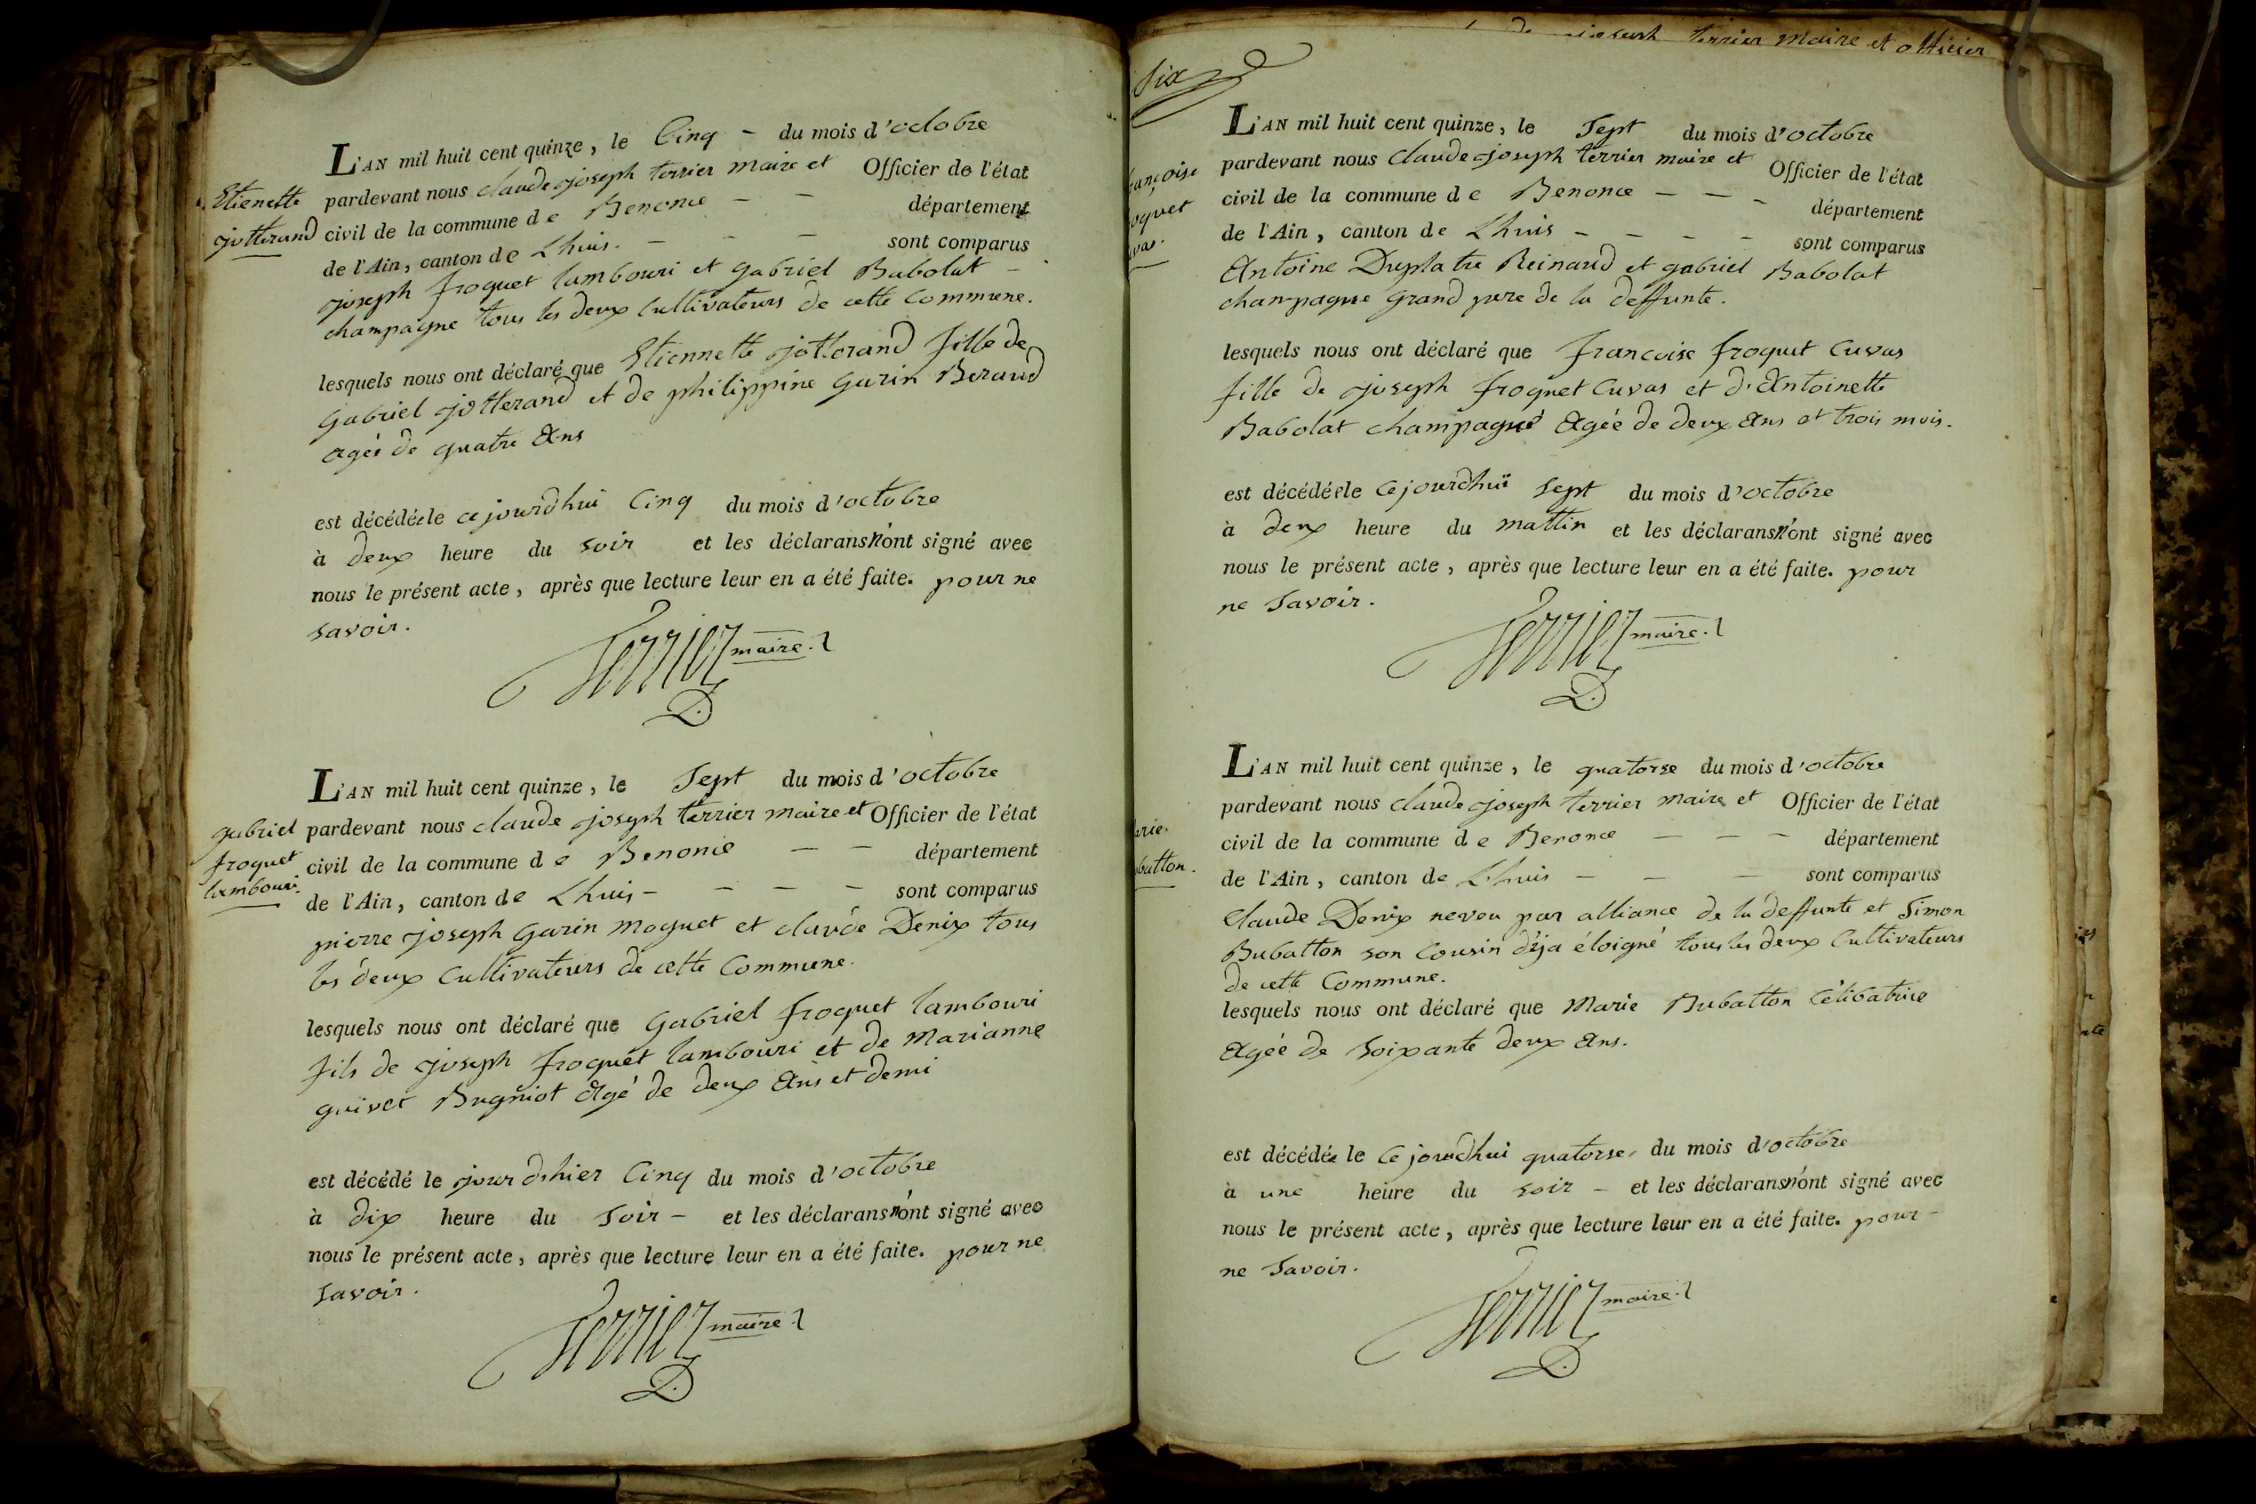 Etienette
jotterand
L'AN mil huit cent quinze, le Cinq - du mois d'octobre
pardevant nous claude joseph terrier maire et Officier de l'état
civil de la commune de Benonce - - département
de l'Ain, canton de Lhuis. - - - sont comparus
joseph froquet lambouri et gabriel Babolat -
champagne tous les deux Cultivateurs de cette Commune.
lesquels nous ont déclaré que Etiennette jotterand fille de
Gabriel jotterand et de philippine Garin Beraud
agée de quatre Ans
est décédée le cejourdhui Cinq du mois d'octobre
à deux heure du soir et les déclarans n'ont signé avec
nous le présent acte, après que lecture leur en a été faite. pour ne
savoir.
Terrier maire.
gabriel
froquet
lambouri.
L'AN mil huit cent quinze, le Sept du mois d'octobre
pardevant nous claude joseph terrier maire et Officier de l'état
civil de la commune de Benonce - - département
de l'Ain, canton de Lhuis - - - - sont comparus
pierre joseph Garin moguet et claude Denix tous
les deux Cultivateurs de cette Commune.
lesquels nous ont déclaré que Gabriel froquet lambouri
fils de joseph froquet lambouri et de Marianne
guivet Bugniot Agé de deux Ans et demi
est décédé le jour d'hier Cinq du mois d'octobre
à dix heure du Soir - et les déclarans n'ont signé avec
nous le présent acte, après que lecture leur en a été faite. pour ne
savoir.
Terrier maire.
joseph terrier maire et officier
Six
ançoise
oquet
uvas.
L'AN mil huit cent quinze, le Sept du mois d'octobre
pardevant nous claude joseph terrier maire et Officier de l'état
civil de la commune de Benonce - - - département
de l'Ain, canton de Lhuis - - - - sont comparus
Antoine Duplatre Reinaud et gabriel Babolat
champagne Grand pere de la deffunte.
lesquels nous ont déclaré que francoise froquet Cuvas
fille de joseph froquet Cuvas et d'Antoinette
Babolat champagne Agée de deux Ans et trois mois.
est décédée le cejourdhui sept du mois d'octobre
à deux heure du mattin et les déclarans n'ont signé avec
nous le présent acte, après que lecture leur en a été faite. pour
ne savoir.
Terrier maire.
arie
ubatton.
L'AN mil huit cent quinze, le quatorse du mois d'octobre
pardevant nous claude joseph terrier maire et Officier de l'état
civil de la commune de Benonce - - - département
de l'Ain, canton de Lhuis - - - sont comparus
Claude Denix neveu par alliance de la deffunte et Simon
Bubatton son Cousin déja éloigné tous les deux Cultivateurs
de cette Commune.
lesquels nous ont déclaré que Marie Bubatton Célibatrice
Agée de soixante deux Ans.
est décédée le cejourdhui quatorse du mois d'octobre
à une heure du soir - et les déclarans n'ont signé avec
nous le présent acte, après que lecture leur en a été faite. pour -
ne savoir.
Terrier maire.